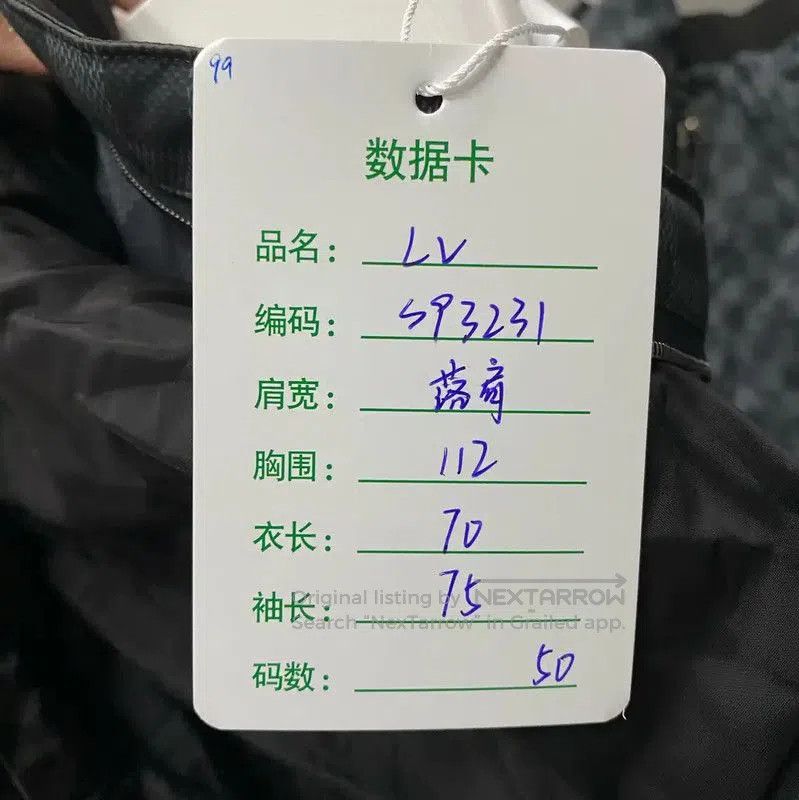 99
数据卡
品名: LV
编码: SP3231
肩宽: 落肩
胸围: 112
衣长: 70
袖长: 75
Original listing by NEXTARROW
Search "NexTarrow" in Grailed app.
码数: 50